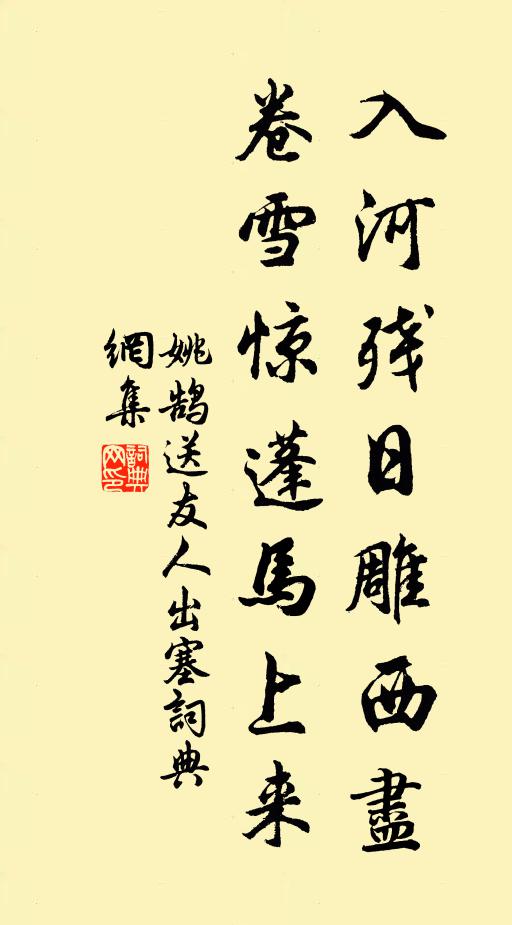 入河残日雕西盡
卷雪惊蓬馬上来
姚鹄送友人出塞詞典
網集
詞典
网印